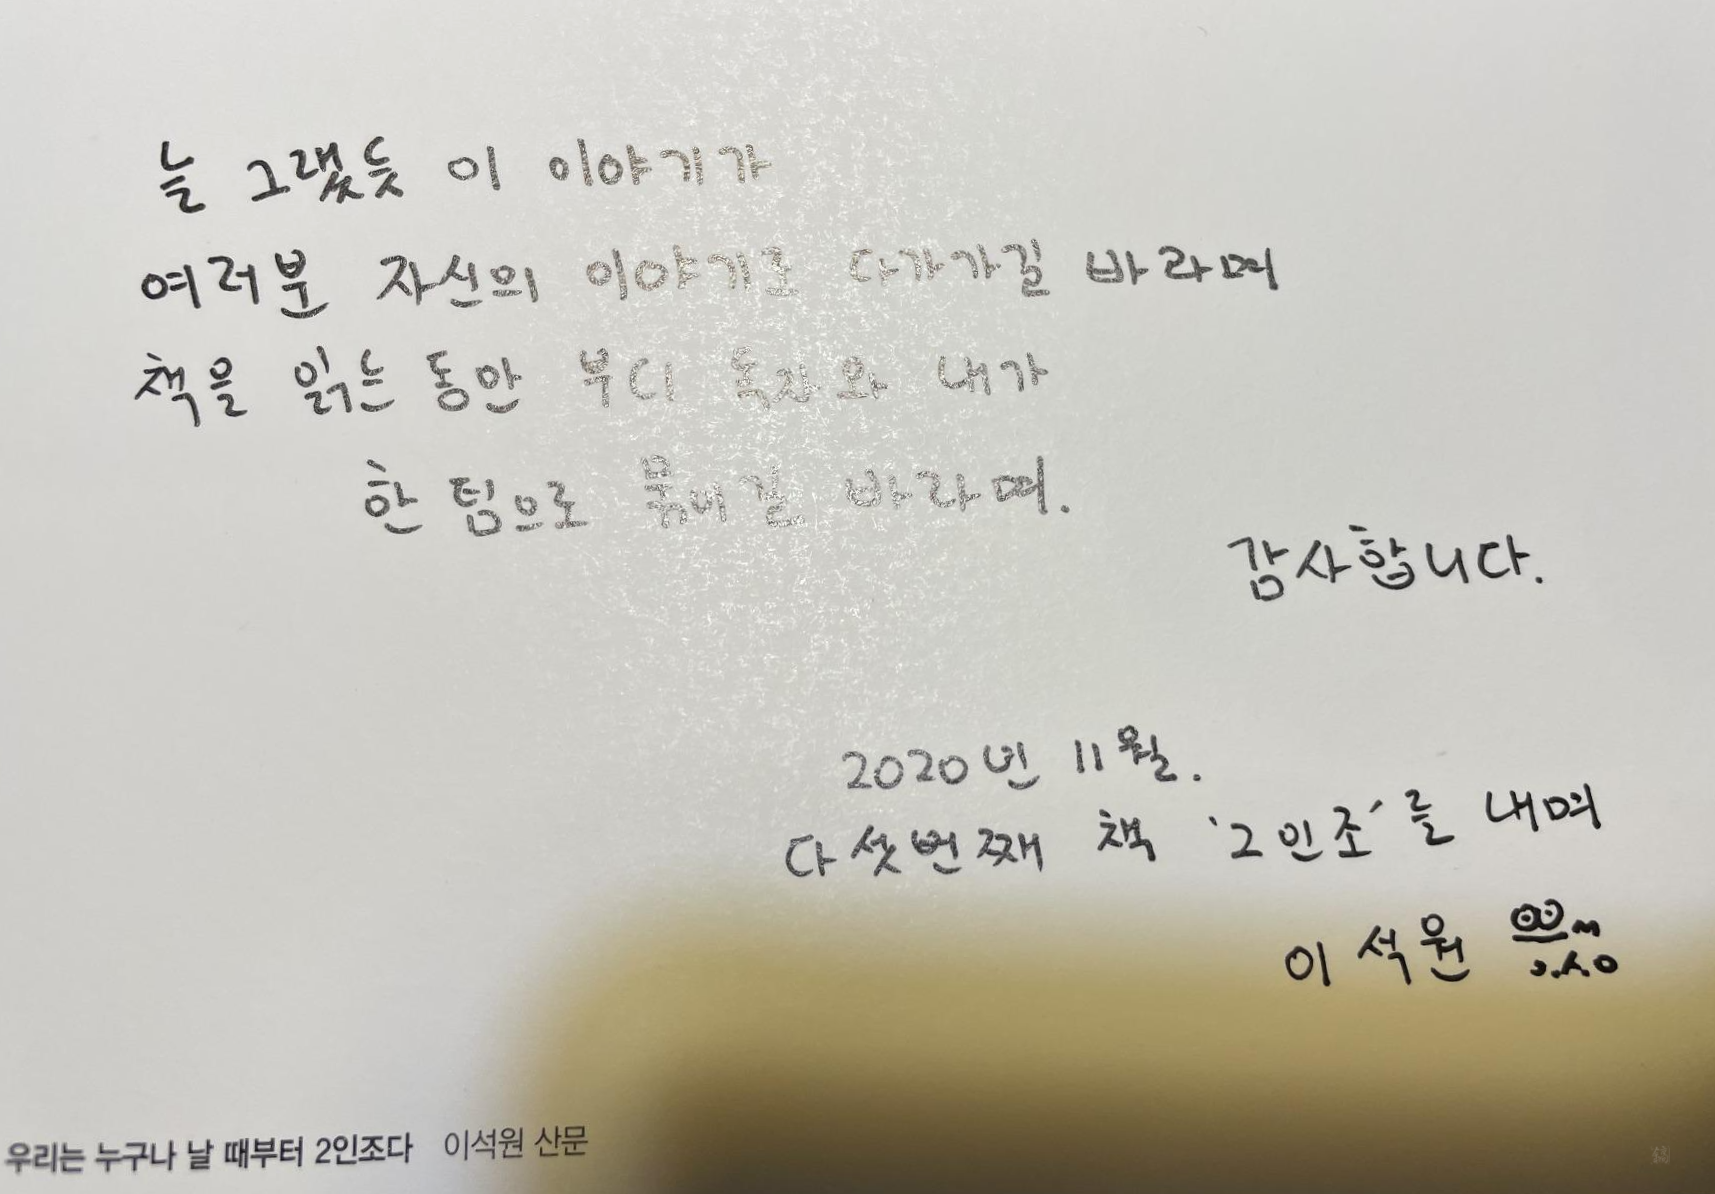 늘 그랬듯 이 이야기가
여러분 자신의 이야기로 다가가길 바라며
책을 읽는 동안 부디 독자와 내가
한 팀으로 묶여길 바라며.
감사합니다.
2020년 11월.
다섯번째 책 '2인조'를 내며
이석원
우리는 누구나 날 때부터 2인조다 이석원 산문